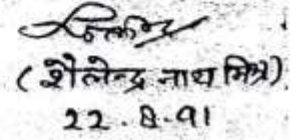 (शैलेन्द्र नाथ मित्र)
22.8.91